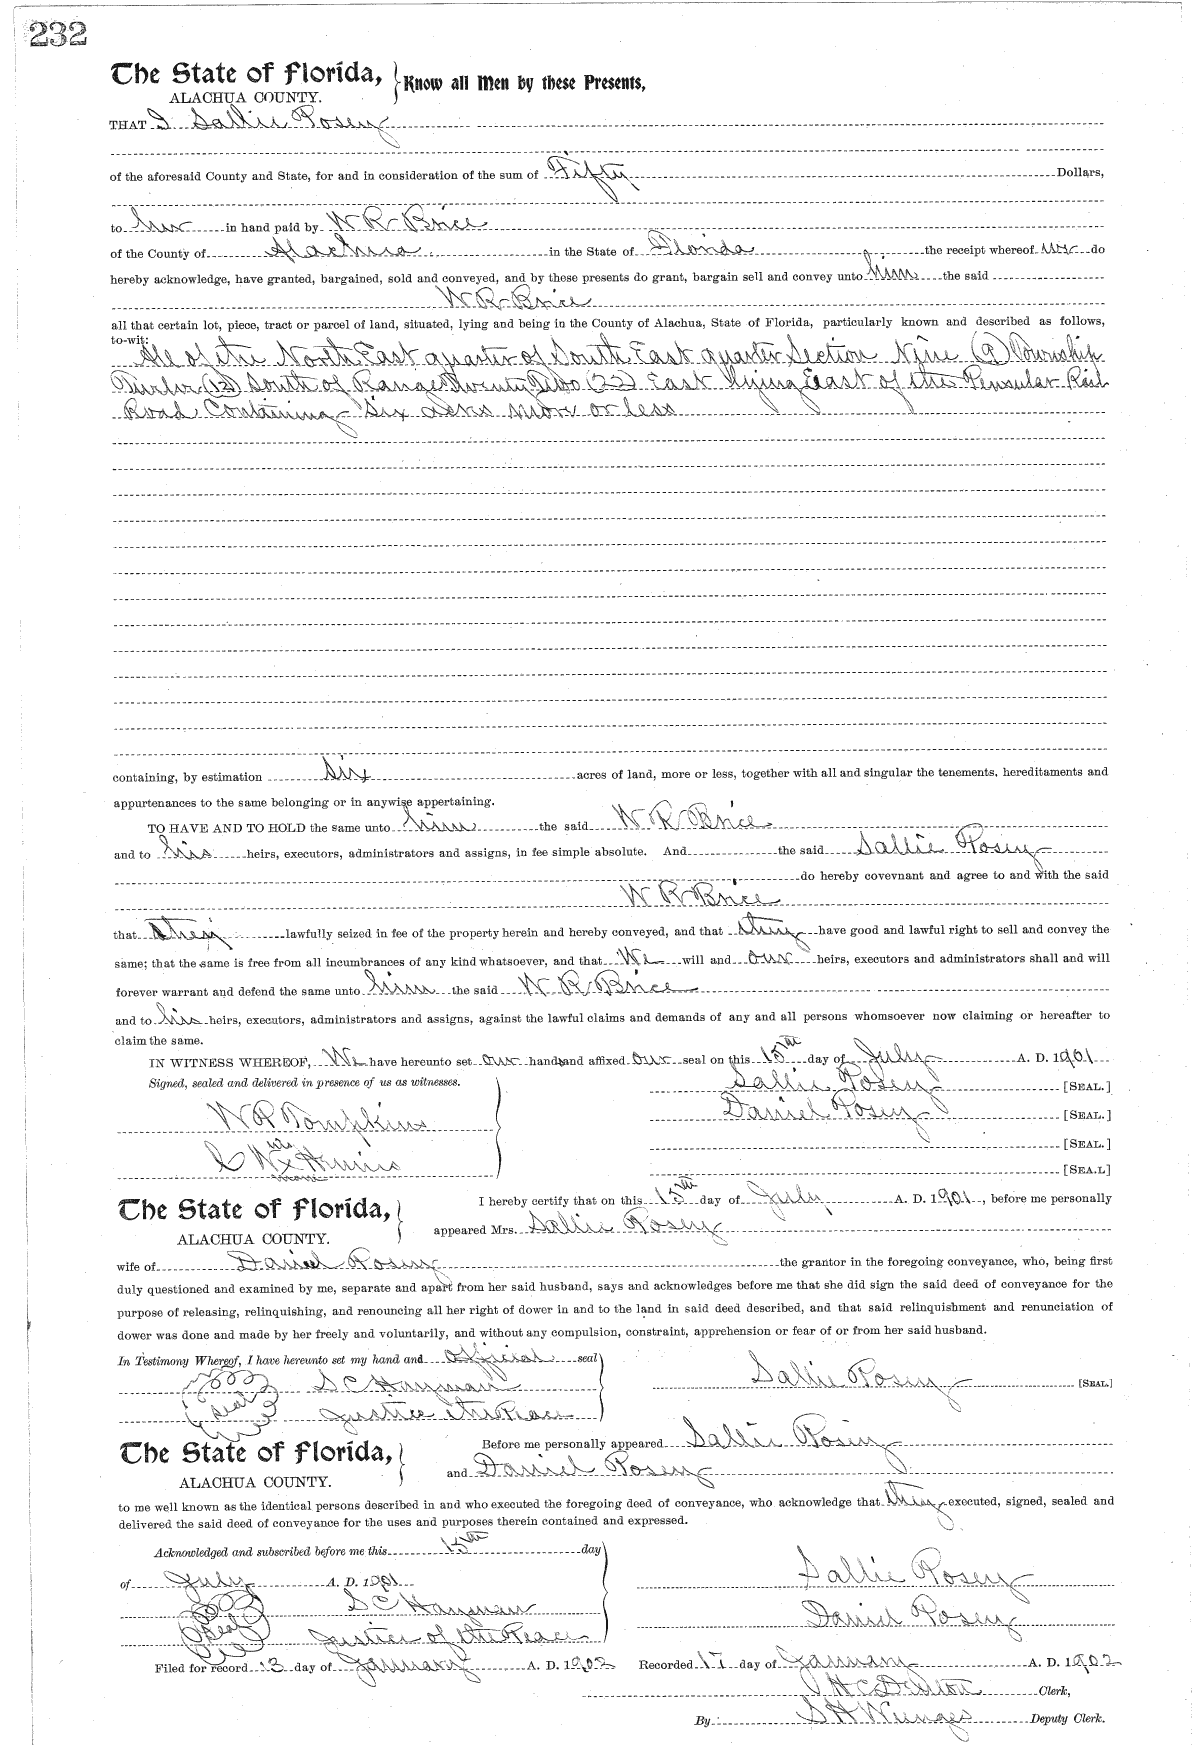 232
The State of Florida, } Know all Men by these Presents,
ALACHUA COUNTY.
THAT I Sallie Posey
of the aforesaid County and State, for and in consideration of the sum of Fifty Dollars,
to her in hand paid by W R Brice
of the County of Alachua in the State of Florida the receipt whereof we do
hereby acknowledge, have granted, bargained, sold and conveyed, and by these presents do grant, bargain sell and convey unto him the said
W R Brice
all that certain lot, piece, tract or parcel of land, situated, lying and being in the County of Alachua, State of Florida, particularly known and described as follows,
to-wit:
All of the North East quarter of South East quarter Section Nine (9) Township
Twelve (12) South of Range Twenty Two (22) East lying East of the Pensular Rail
Road Containing Six acres more or less
containing, by estimation Six acres of land, more or less, together with all and singular the tenements, hereditaments and
appurtenances to the same belonging or in anywise appertaining.
TO HAVE AND TO HOLD the same unto him the said W R Brice
and to his heirs, executors, administrators and assigns, in fee simple absolute. And the said Sallie Posey
do hereby covevnant and agree to and with the said
W R Brice
that they lawfully seized in fee of the property herein and hereby conveyed, and that they have good and lawful right to sell and convey the
same; that the same is free from all incumbrances of any kind whatsoever, and that We will and our heirs, executors and administrators shall and will
forever warrant and defend the same unto him the said W R Brice
and to his heirs, executors, administrators and assigns, against the lawful claims and demands of any and all persons whomsoever now claiming or hereafter to
claim the same.
IN WITNESS WHEREOF, We have hereunto set our hands and affixed our seal on this 15th day of July A. D. 1901
Signed, sealed and delivered in presence of us as witnesses.
Sallie Posey [SEAL.]
Daniel Posey [SEAL.]
W R Tompkins
[SEAL.]
his
C W x
mark
[SEA.L]
The State of Florida, } I hereby certify that on this 15th day of July A. D. 1901, before me personally
ALACHUA COUNTY. appeared Mrs. Sallie Posey
wife of Daniel Posey the grantor in the foregoing conveyance, who, being first
duly questioned and examined by me, separate and apart from her said husband, says and acknowledges before me that she did sign the said deed of conveyance for the
purpose of releasing, relinquishing, and renouncing all her right of dower in and to the land in said deed described, and that said relinquishment and renunciation of
dower was done and made by her freely and voluntarily, and without any compulsion, constraint, apprehension or fear of or from her said husband.
In Testimony Whereof, I have hereunto set my hand and official seal
seal S C Hayman Sallie Posey [SEAL.]
Justice the Peace
The State of Florida, } Before me personally appeared Sallie Posey
ALACHUA COUNTY. and Daniel Posey
to me well known as the identical persons described in and who executed the foregoing deed of conveyance, who acknowledge that they executed, signed, sealed and
delivered the said deed of conveyance for the uses and purposes therein contained and expressed.
Acknowledged and subscribed before me this 15th day
of July A. D. 1901 Sallie Posey
seal S C Hayman Daniel Posey
Justice of the Peace
Filed for record 13 day of January A. D. 1902 Recorded 17 day of January A. D. 1902
H C Denton Clerk,
By S H Wienges Deputy Clerk.